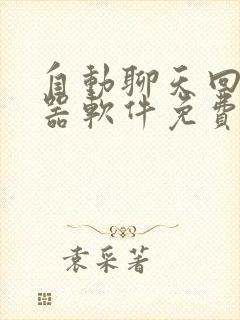 自動聊天回
器軟件免費
袁采著